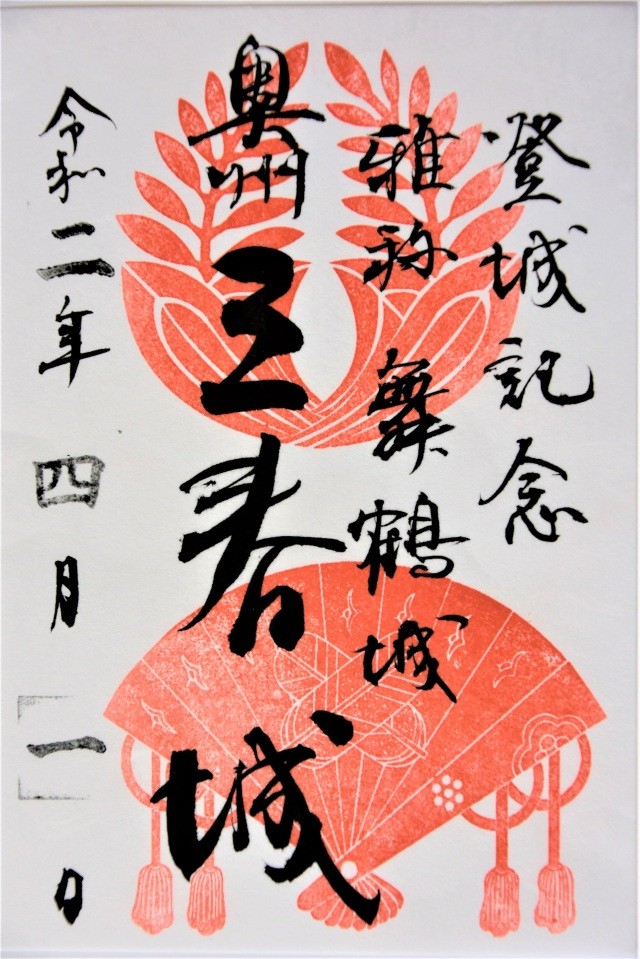 登城記念
雅称 舞鶴城
奥州 三春城
令和二年 四月 一日